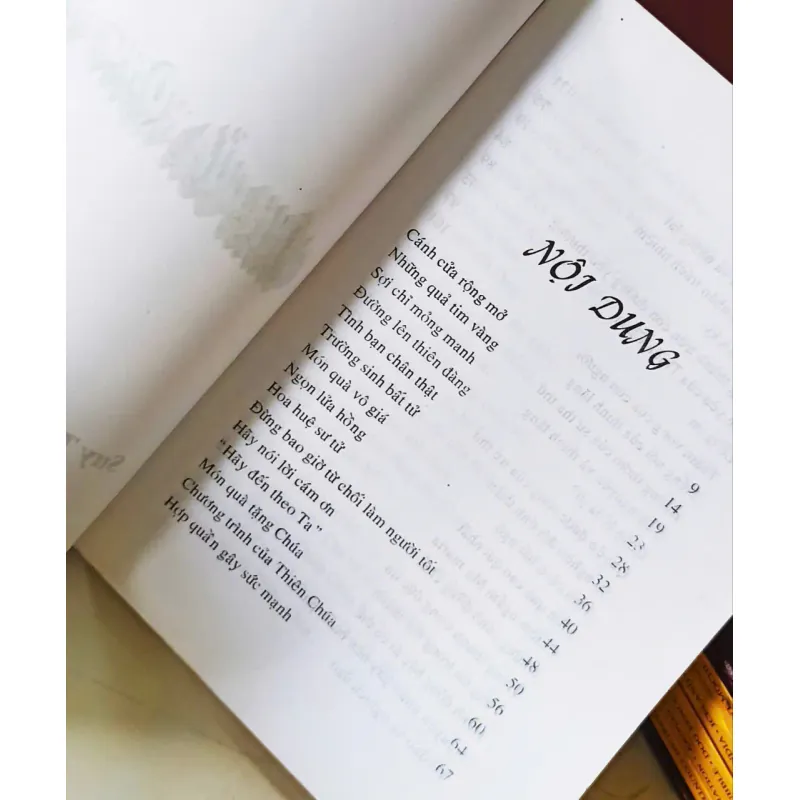 NỘI DUNG
Cánh cửa rộng mở 9
Những quả tim vàng 14
Sợi chỉ mỏng manh 19
Đường lên thiên đàng 23
Tình bạn chân thật 28
Trường sinh bất tử 32
Món quà vô giá 36
Ngọn lửa hồng 40
Hoa huệ sư tử 44
Đừng bao giờ từ chối làm người tốt 48
Hãy nói lời cám ơn 50
“ Hãy đến theo Ta ” 56
Món quà tặng Chúa 60
Chương trình của Thiên Chúa 64
Hợp quần gây sức mạnh 67
BIBLE